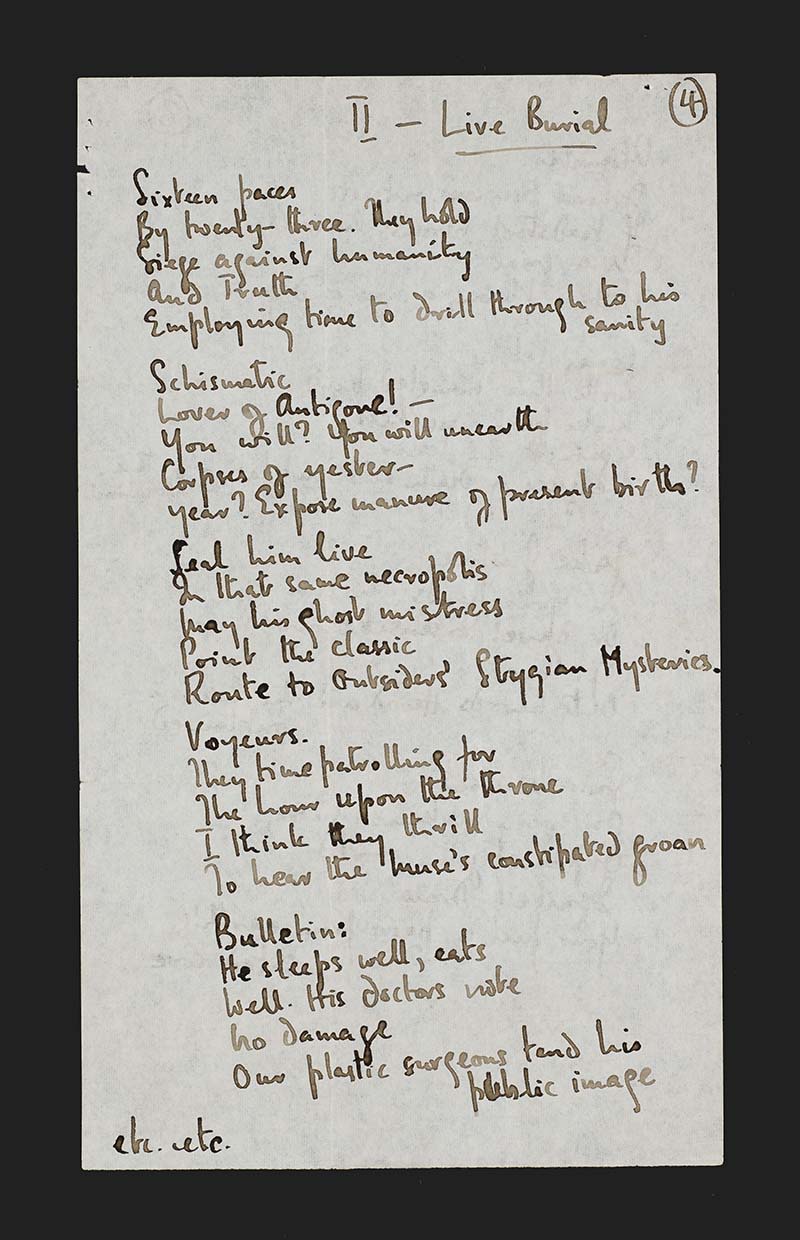 ④
II — Live Burial
Sixteen paces
By twenty-three. They hold
Siege against humanity
And Truth
Employing time to drill through to his
sanity
Schismatic
Lover of Antigone! —
You will? You will unearth
Corpses of yester-
year? Expose manure of present birth?
Seal him live
In that same necropolis
May his ghost mistress
Point the classic
Route to Outsiders' Stygian Mysteries.
Voyeurs.
They time patrolling for
The hour upon the throne
I think they thrill
To hear the Muse's constipated groan
Bulletin:
He sleeps well, eats
Well. His doctors note
No damage
Our plastic surgeons tend his
public image
etc. etc.